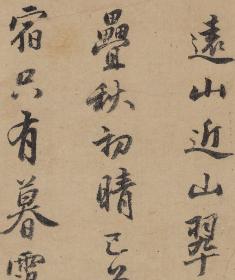 遠山近山翠
疊秋初晴已
宿只有暮雲